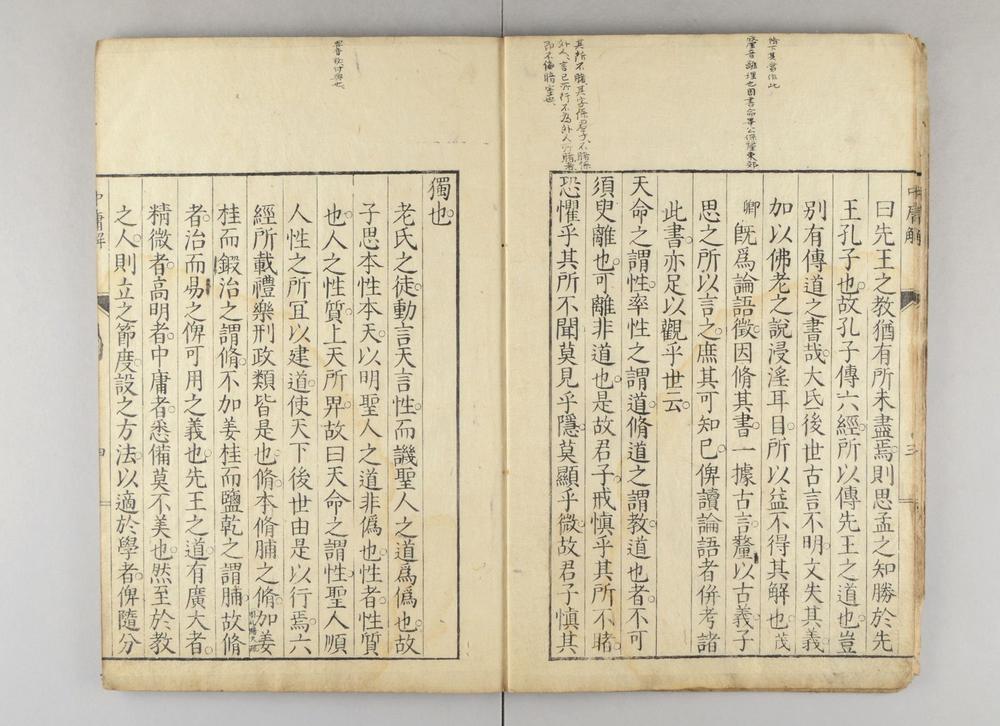 脩下其當作此
釐音離理也因書命畢公保釐東郊
曰先王之教猶有所未盡焉則思孟之知勝於先
王孔子也故孔子傳六經所以傳先王之道也豈
別有傳道之書哉大氐後世古言不明文失其義
加以佛老之說浸淫耳目所以益不得其解也茂
卿旣爲論語徵因脩其書一據古言釐以古義子
思之所以言之庶其可知已俾讀論語者併考諸
此書亦足以觀乎世云
天命之謂性率性之謂道脩道之謂教道也者不可
須臾離也可離非道也是故君子戒慎乎其所不睹
恐懼乎其所不聞莫見乎隱莫顯乎微故君子慎其
中庸解
三
獨也
老氏之徒動言天言性而譏聖人之道爲僞也故
子思本性本天以明聖人之道非僞也性者性質
也人之性質上天所畀故曰天命之謂性聖人順
人性之所宜以建道使天下後世由是以行焉六
經所載禮樂刑政類皆是也脩本脩脯之脩加姜
桂而鍛治之謂脩不加姜桂而鹽乾之謂脯故脩
者治而易之俾可用之義也先王之道有廣大者
精微者高明者中庸者悉備莫不美也然至於教
之人則立之節度設之方法以適於學者俾隨分
中庸解
四